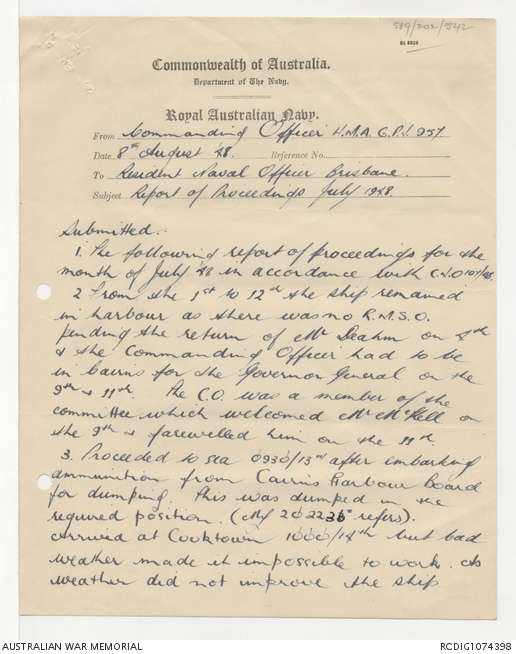 589/202/542
Commonwealth of Australia.
Department of The Navy.
Royal Australian Navy.
From Commanding Officer H.M.A. G.P.V. 957
Date 8th August '48. Reference No.
To Resident Naval Officer Brisbane.
Subject Report of Proceedings July 1948.
Submitted:-
1. The following report of proceedings for the
month of July 48 in accordance with
2 From the 1st to 12th the ship remained
in harbour as there was no R.M.S.O.
pending the return of Mr Deahm on
& the Commanding Officer had to be
in Cairns for the Governor General on the
9th & 11th. The C.O. was a member of the
committee which welcomed Mr McKell on
the 9th & farewelled him on the 11th.
3. Proceeded to sea 0930/13th after embarking
ammunition from Cairns Harbour Board
for dumping. This was dumped in the
required position. (My refers).
Arrived at Cooktown 1000/14th but bad
weather made it impossible to work. As
weather did not improve the ship
AUSTRALIAN WAR MEMORIAL
RCDIG1074398